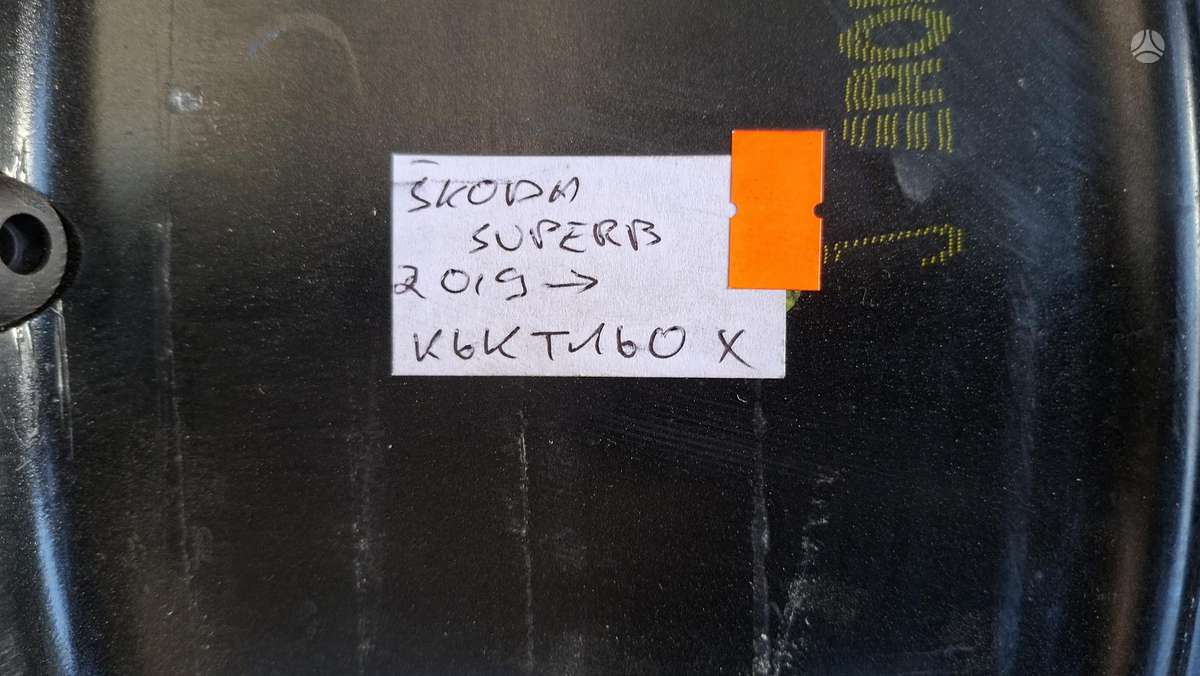 ŠKODA
SUPERB
2019 →
K6KT160 X